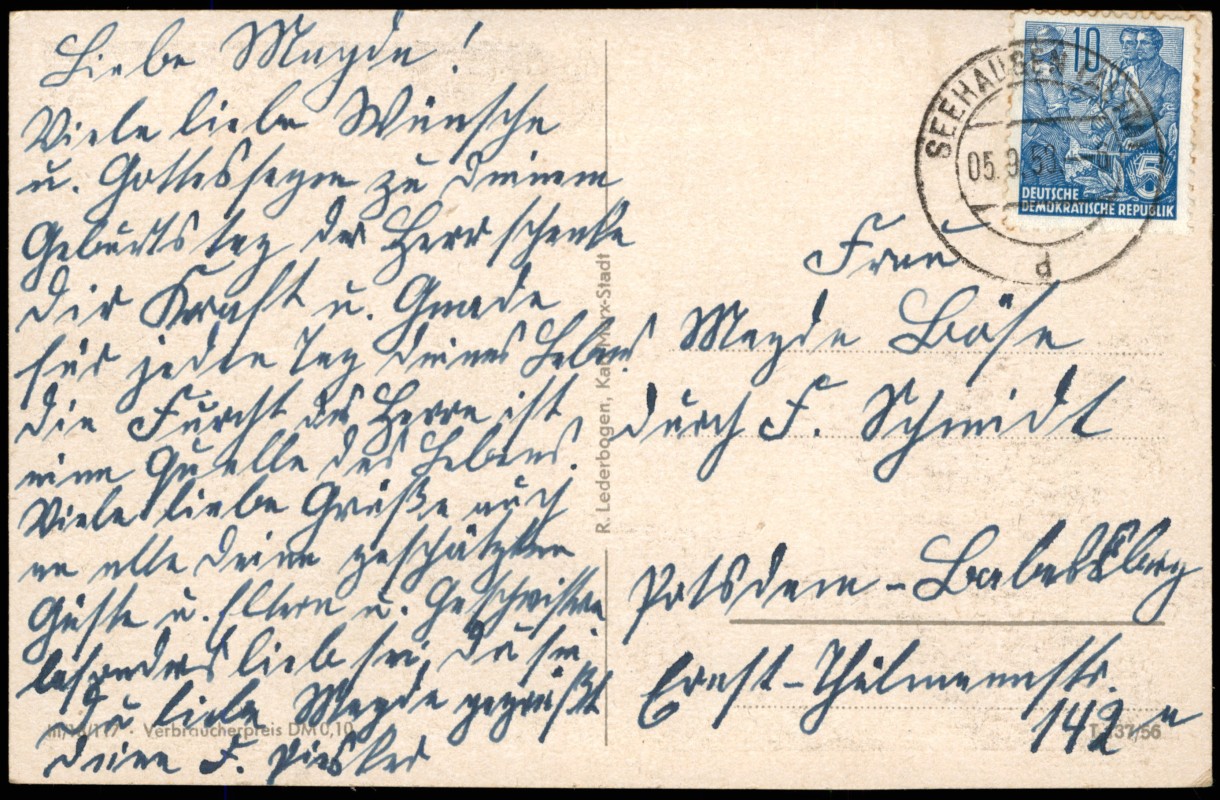 Liebe Magda!
Viele liebe Wünsche
u. Gottessegen zu Deinem
Geburtstag der Herr schenke
Dir Kraft u. Gnade
für jeden Tag Deines Lebens
die Furcht des Herrn ist
eine Quelle des Lebens.
Viele liebe Grüße auch
an alle Deine geschätzten
Gäste u. Eltern u. Geschwister
besonders lieb sei, Du
Du liebe Magda gegrüßt
Deine F.
III/18/117 · Verbraucherpreis DM 0,10
R. Lederbogen, Karl-Marx-Stadt
10
5
DEUTSCHE
DEMOKRATISCHE REPUBLIK
SEEHAUSEN (ALTM)
05.9.
d
Frau
Magda Böse
durch F. Schmidt
Potsdam - Babelsberg
Ernst-Thälmannstr.
142 a
T 137/56